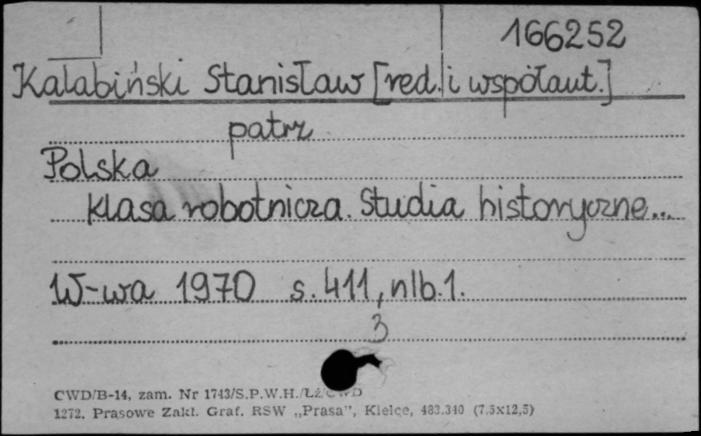 166252
Kałabiński Stanisław [red. i współaut.]
patrz
Polska
klasa robotnicza. Studia historyczne...
W-wa 1970 s. 411, nlb. 1.
3
CWD/B-14, zam. Nr 1743/S.P.W.H./Łż/CWD
1272. Prasowe Zakł. Graf. RSW „Prasa”, Kielce, 483.340 (7,5x12,5)